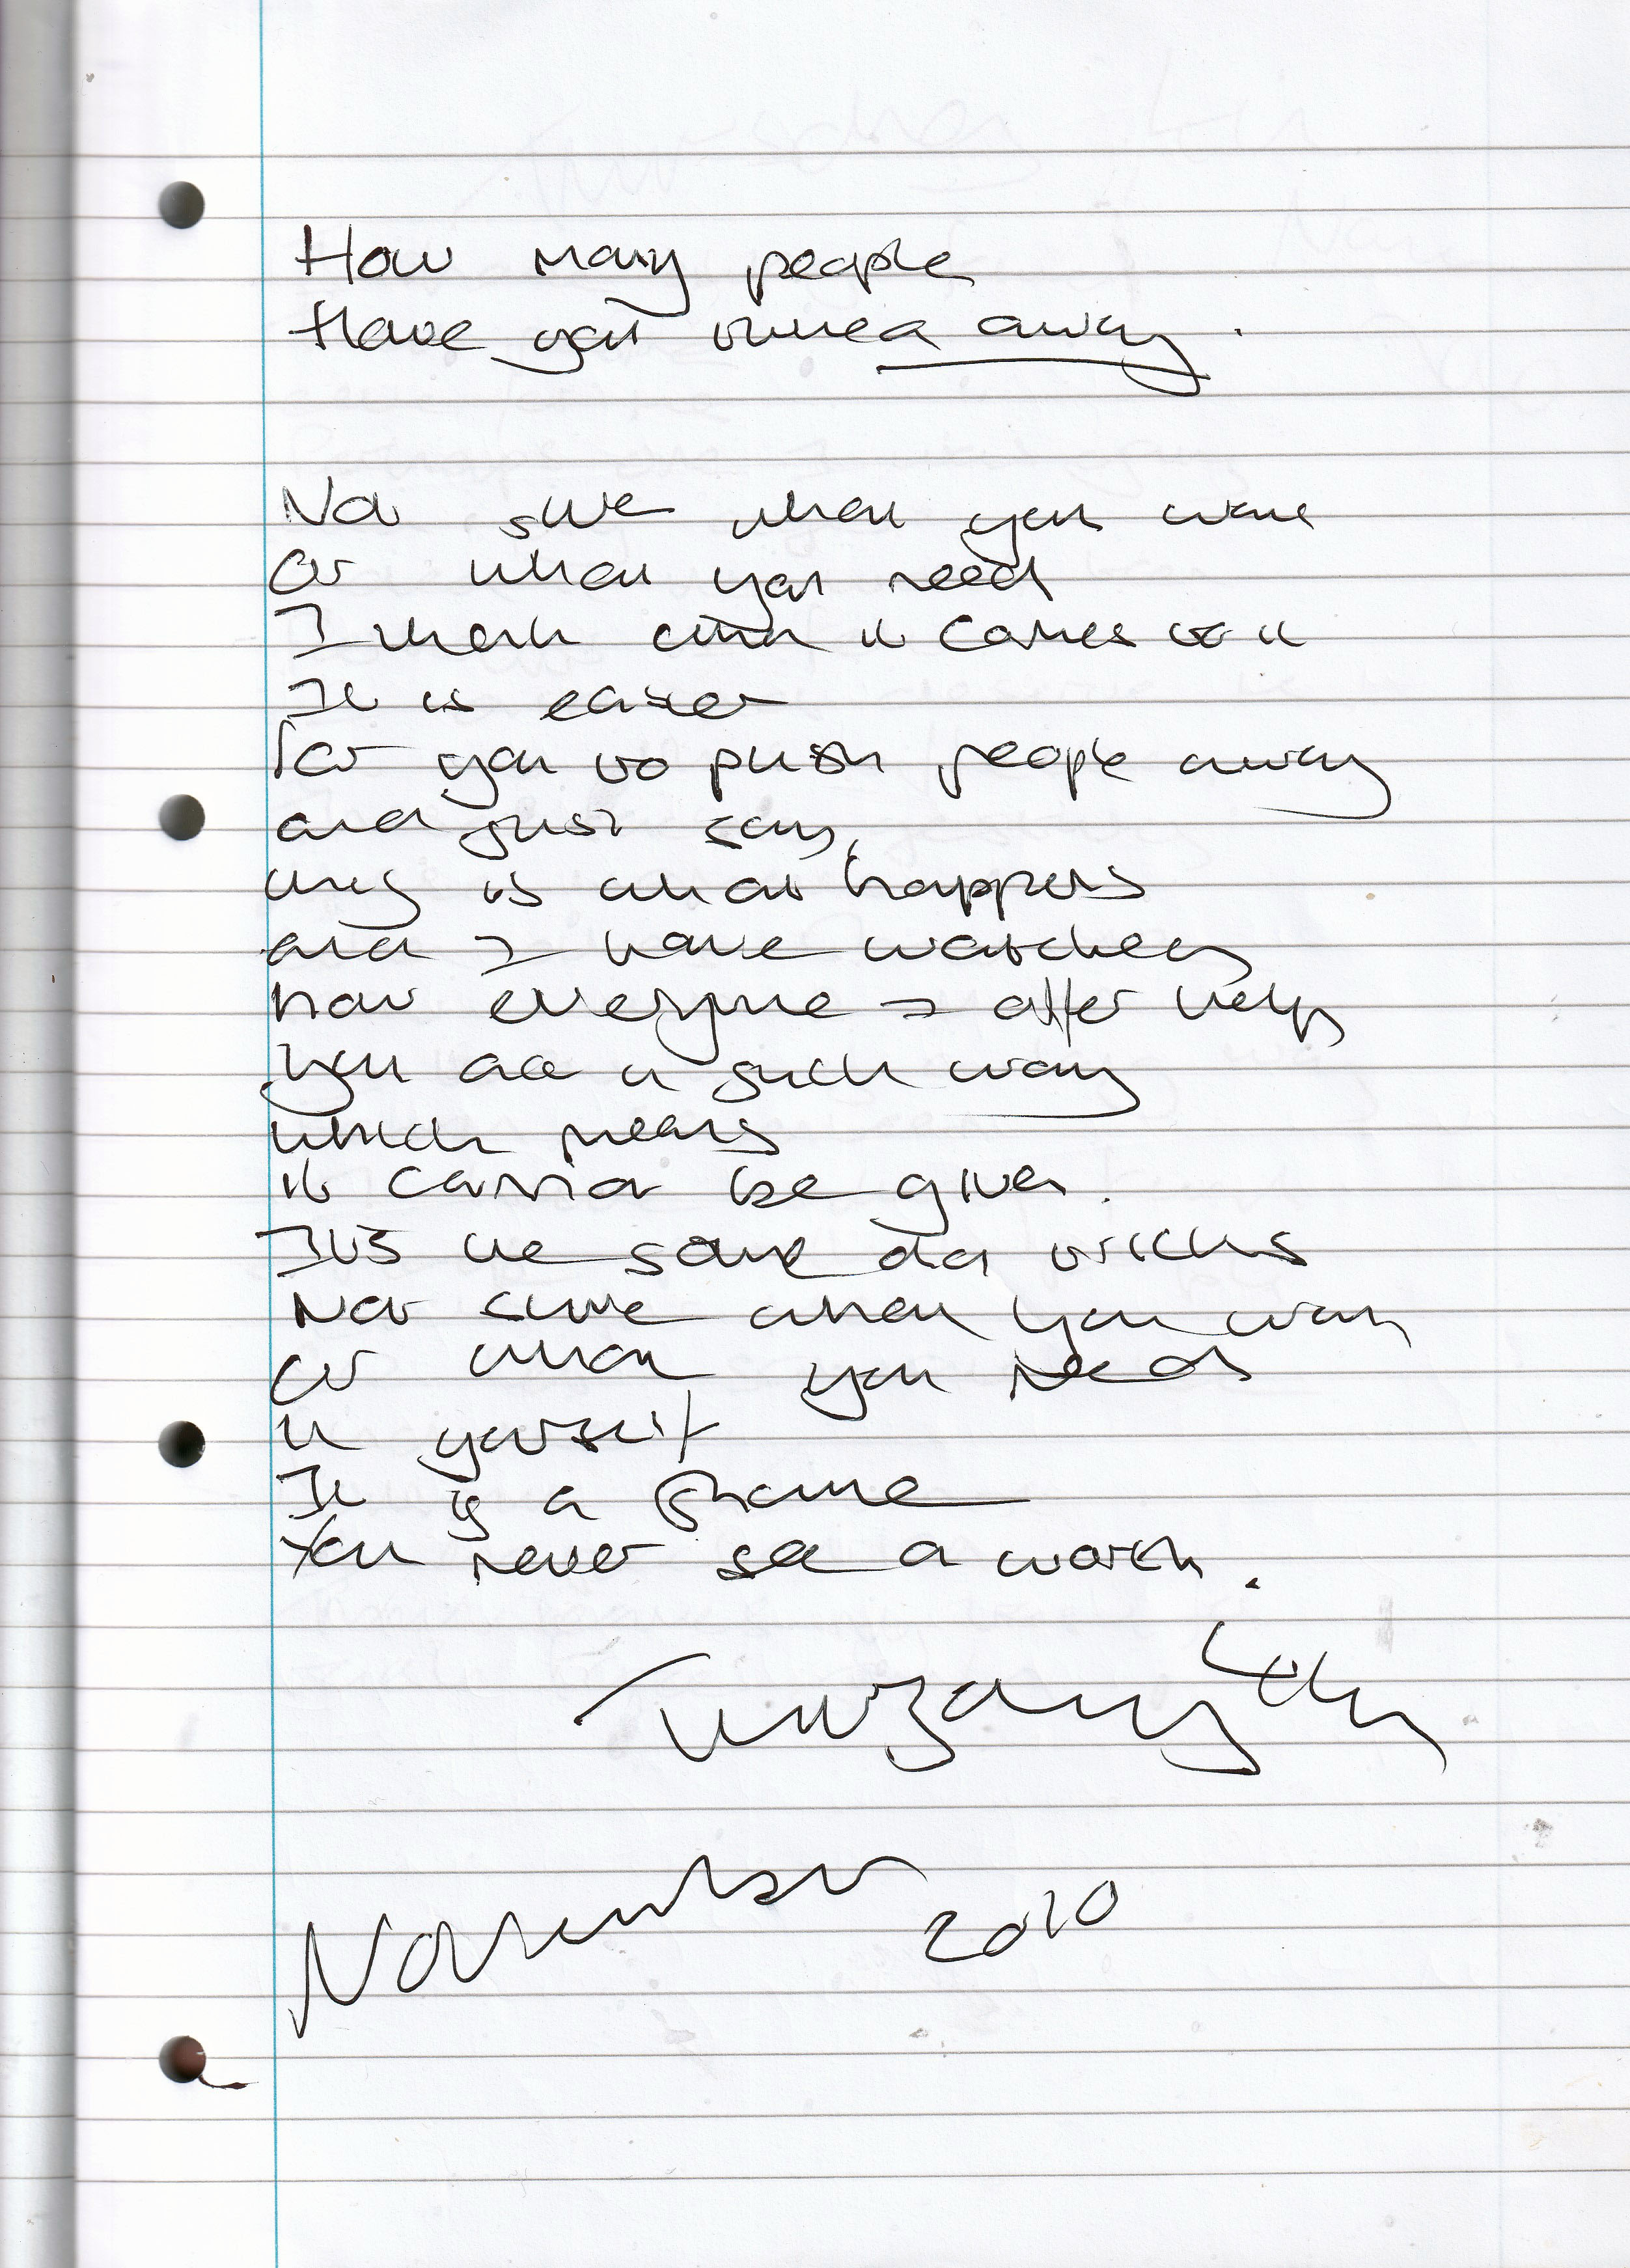 How many people
Have you turned away.
Not sure what you want
Or what you need
I think when it comes to it
It is easier
For you to push people away
and just say,
this is what happens
and I have watched
how everytime I offer help
you act in such way
which means
it cannot be given.
It's the same old tricks
Not sure what you want
or what you need
in yourself
It is a shame
You never see a worth.
November 2010